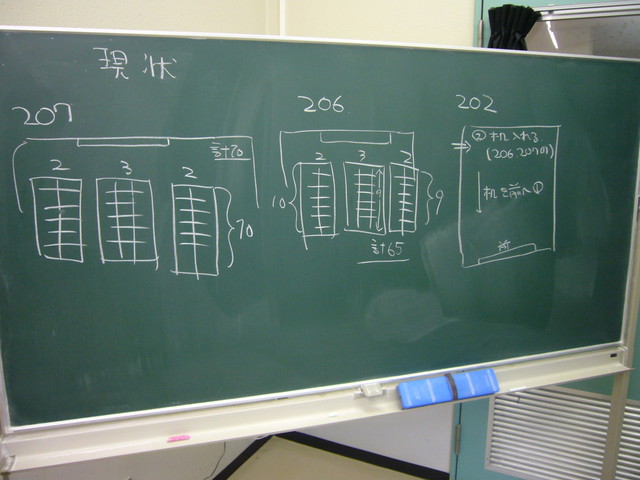 現状
207
計70
2
3
2
10
206
2
3
2
10
9
9
計65
202
② 机入れる
(206 207の)
机を前へ①